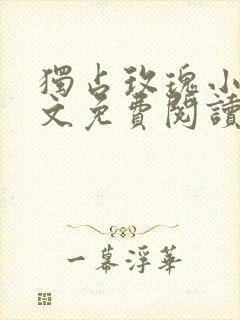 獨占玫瑰小
文免費閱讀
一幕浮華